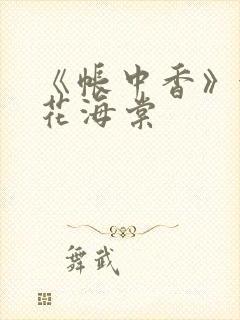 《帐中香》
花海棠
舞武